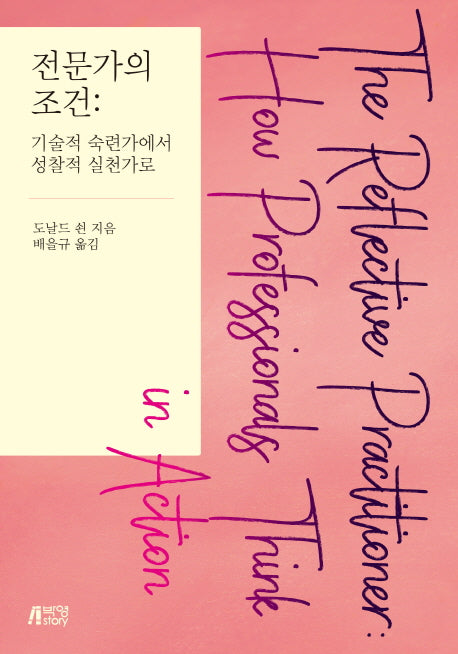 전문가의
조건:
기술적 숙련가에서
성찰적 실천가로
도날드 쇤 지음
배을규 옮김
The Reflective Practitioner:
How Professionals Think
in Action
박영
story